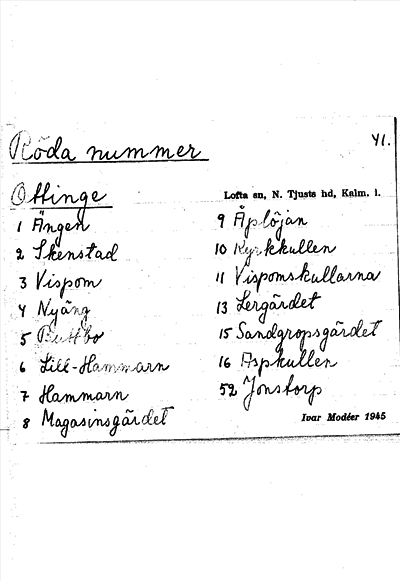 Röda nummer
41.
Ottinge
Lofta sn, N. Tjusts hd, Kalm. l.
1 Ängen
2 Skenstad
3 Vispom
4 Nyäng
5
6 Lill-Hammarn
7 Hammarn
8 Magasinsgärdet
9 Äplöjan
10 Kyrkkullen
11 Vispomskullarna
13 Lergärdet
15 Sandgropsgärdet
16 Aspkullen
52 Jonstorp
Ivar Modéer 1945